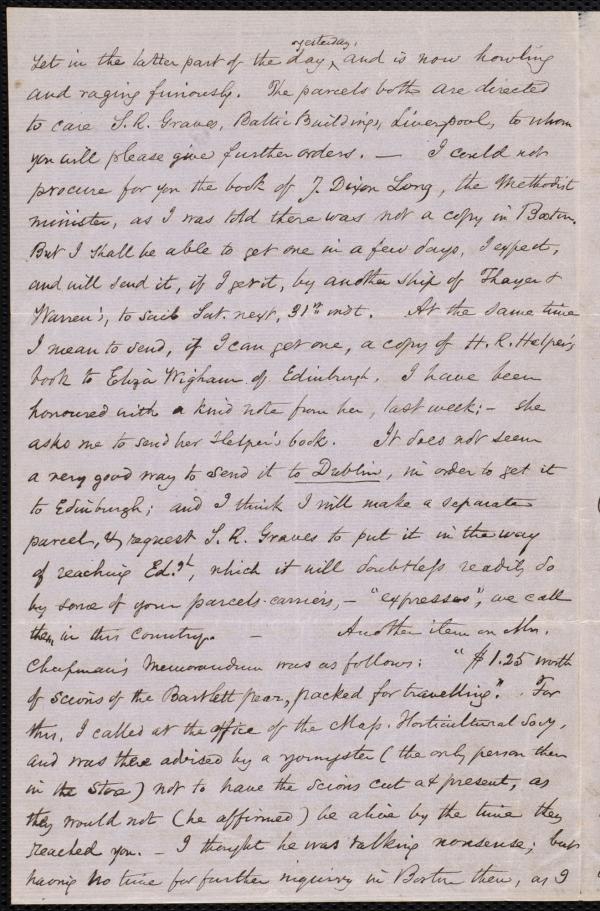 yesterday,
set in the latter part of the day, ‸ and is now howling
and raging furiously. The parcels both are directed
to care S. R. Graves, Baltic Buildings, Liverpool, to whom
you will please give further orders. — I could not
procure for you the book of J. Dixon Long, the Methodist
minister, as I was told there was not a copy in Boston.
But I shall be able to get one in a few days, I expect,
and will send it, if I get it, by another ship of Thayer &
Warren's, to sail Sat. next, 31st inst. At the same time
I mean to send, if I can get one, a copy of H. R. Helper's
book to Eliza Wigham of Edinburgh. I have been
honoured with a kind note from her, last week; – she
asks me to send her Helper's book. It does not seem
a very good way to send it to Dublin, in order to get it
to Edinburgh; and I think I will make a separate
parcel, & request S. R. Graves to put it in the way
of reaching Ed.gh, which it will doubtless readily do
by some of your parcels-carriers, – "expresses", we call
them in this country. – Another item on Mrs.
Chapman's Memorandum was as follows: "$1.25 worth
of scions of the Bartlett pear, packed for travelling". For
this, I called at the office of the Mass. Horticultural Socy,
and was there advised by a youngster (the only person then
in the store) not to have the scions cut at present, as
they would not (he affirmed) be alive by the time they
reached you. – I thought he was talking nonsense; but
having no time for further inquiry in Boston then, as I